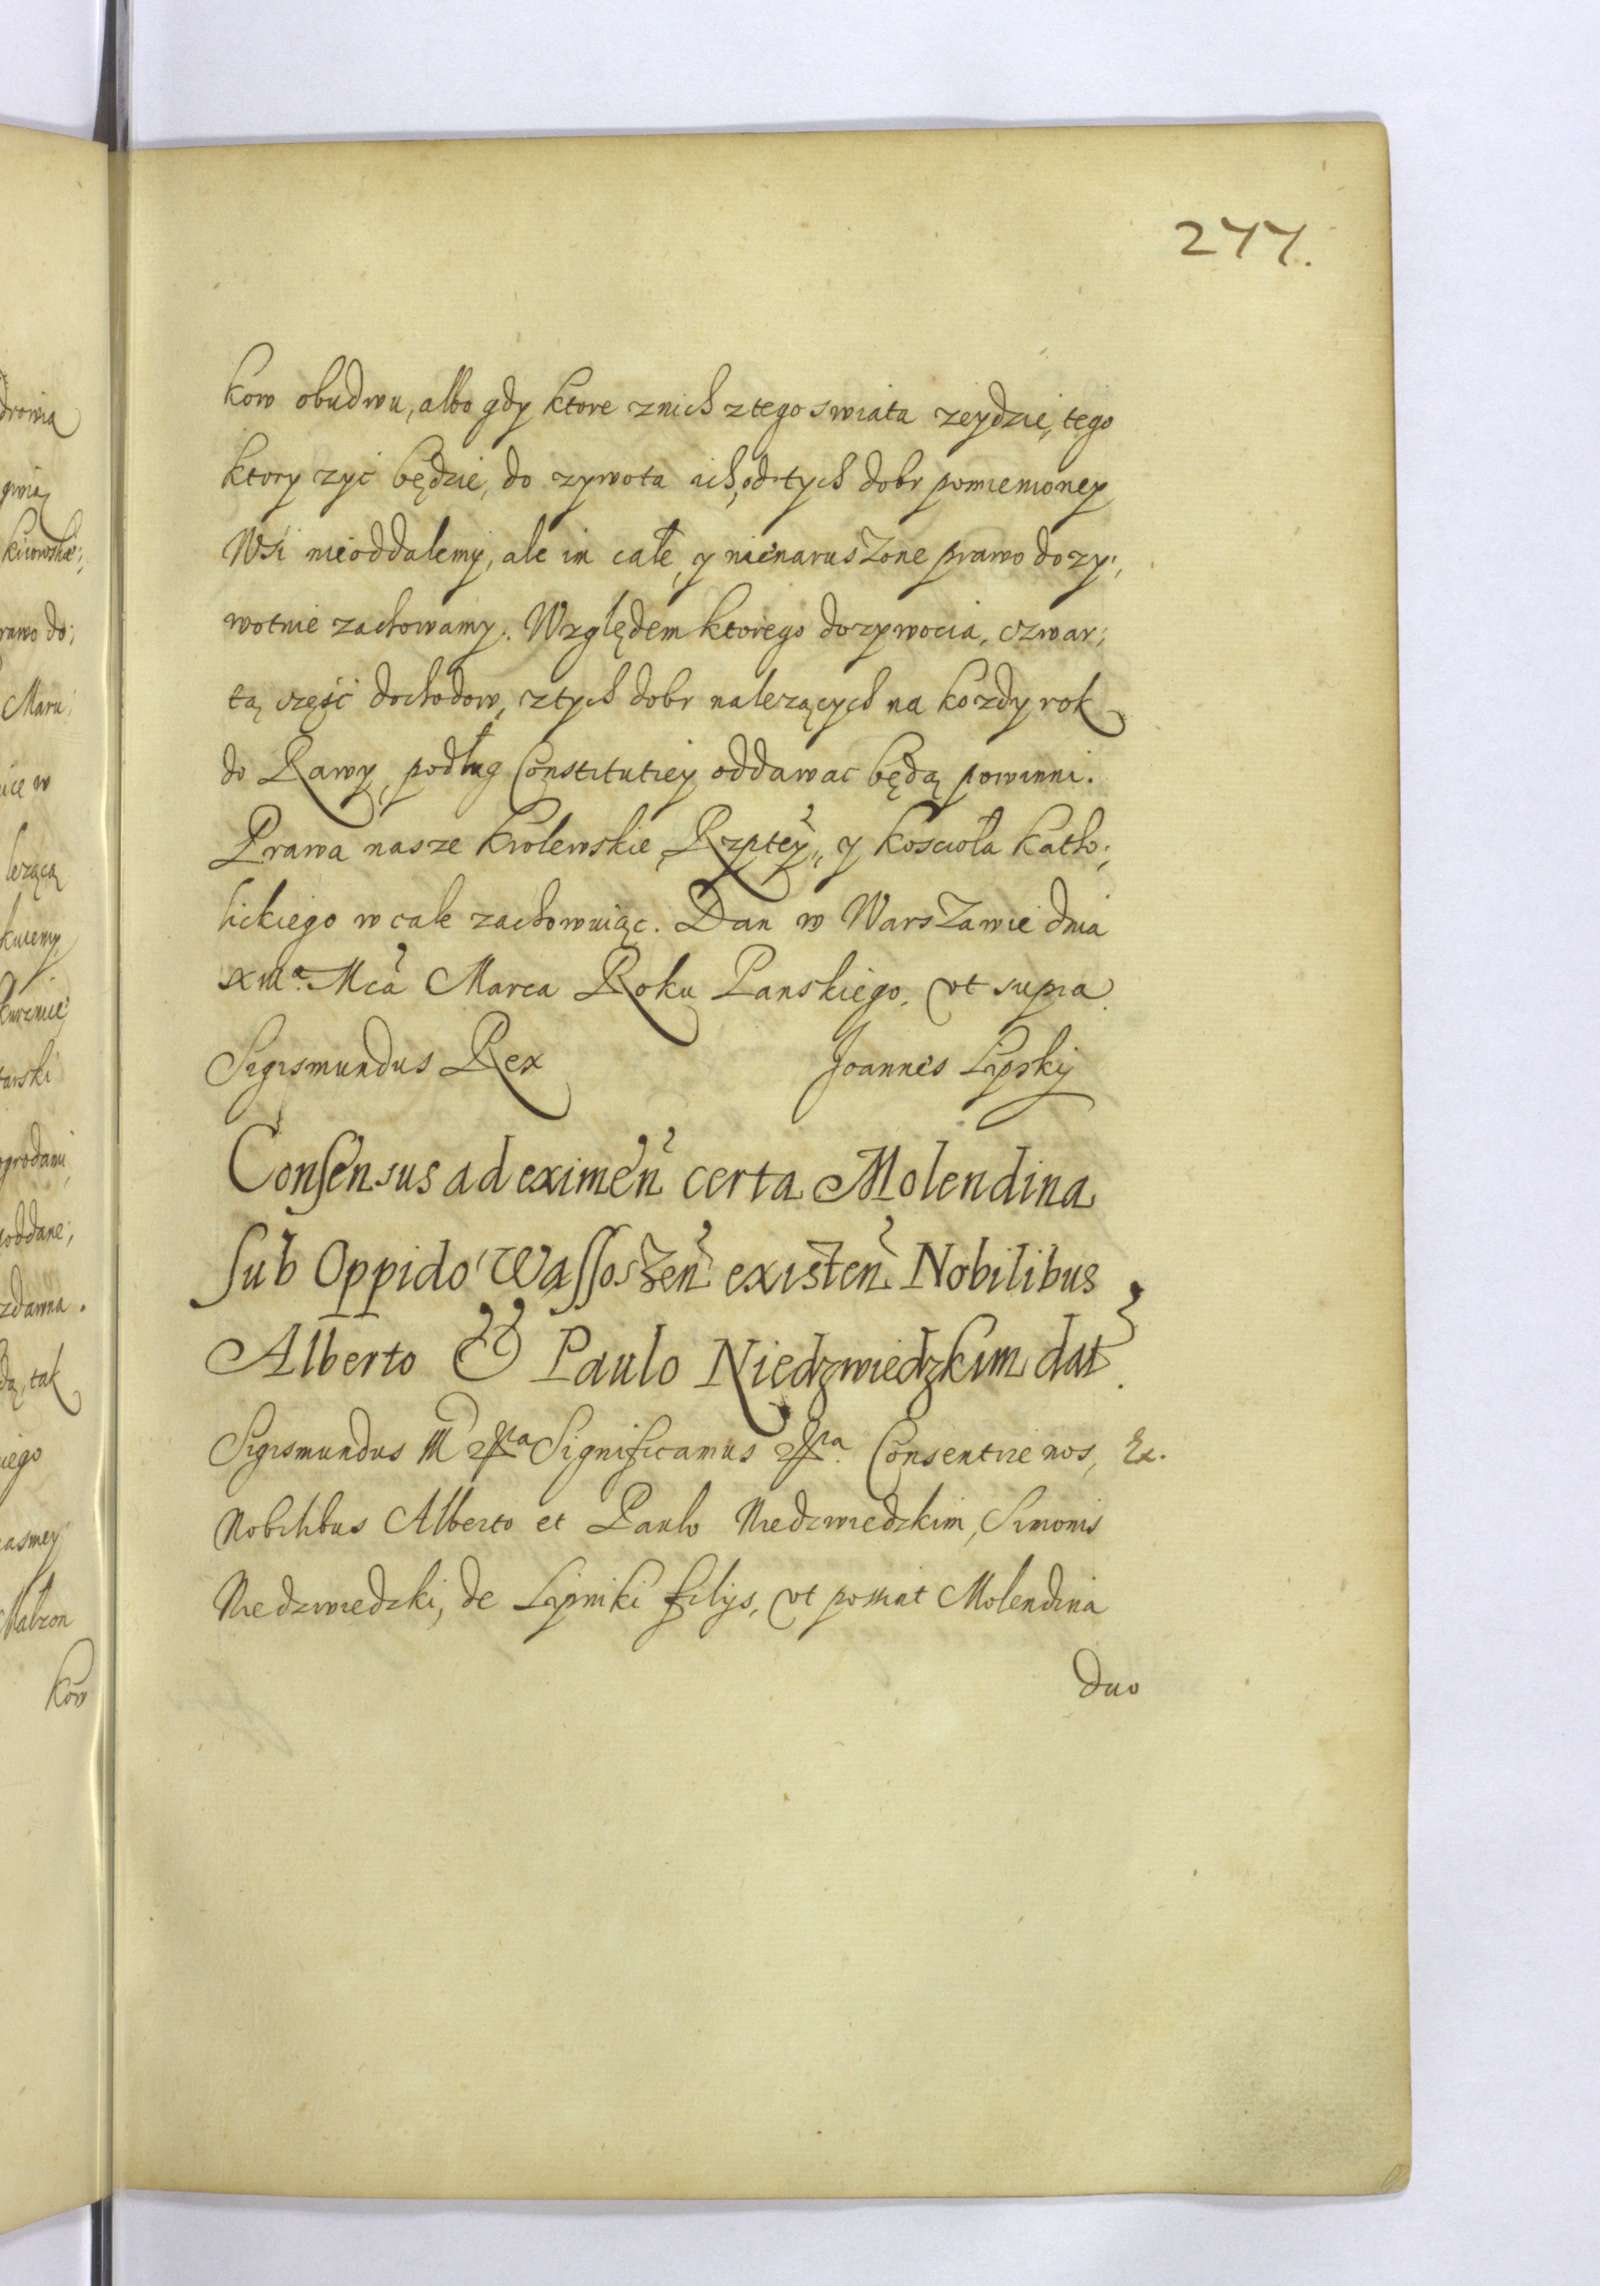 277.
kow obudwu, albo gdy ktore znich ztego swiata zeydzie, tego
ktory zyć będzie, do zywota ich, od tych dobr pomienioney
Wsi nieoddalemy, ale im całe, y nienaruszone prawo dozy:,
wotnie zachowamy. Względem ktorego dozywocia, czwar:,
tą część dochodow, ztych dobr nalezących na kozdy rok
do Rawy, podług Constitutiey oddawac będą powinni.
Prawa nasze Krolewskie, Rzptey, y koscioła Katho:,
lickiego w cale zachowuiąc. Dan w Warszawie dnia
Mca Marca Roku Panskiego, vt supra.
Sigismundus Rex Joannes Lipskij
Consensus ad eximen certa Molendina
sub Oppido Wassoszen existen Nobilibus
Alberto & Paulo Niedzwiedzkim dat.
Sigismundus III Significamus Consentire nos, Ex.
Nobilibus Alberto et Paulo Niedzwiedzkim, Simonis
Niedzwiedzki, de Lipniki filijs, vt possint Molendina
duo
drowia
rawo do:,
Maru:
lezącą
kuiemy
tarski
ogrodami
oddane,
zdawna.
dą, tak
iego
Malzon
kow